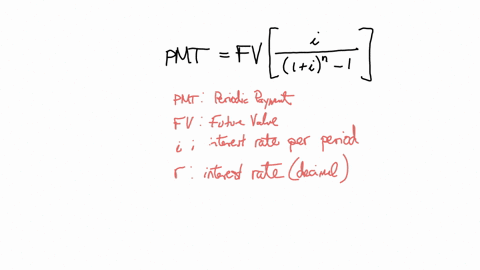 PMT = FV[i/((1+i)^n - 1)]
PMT: Periodic Payment
FV: Future Value
i: interest rate per period
r: interest rate (decimal)